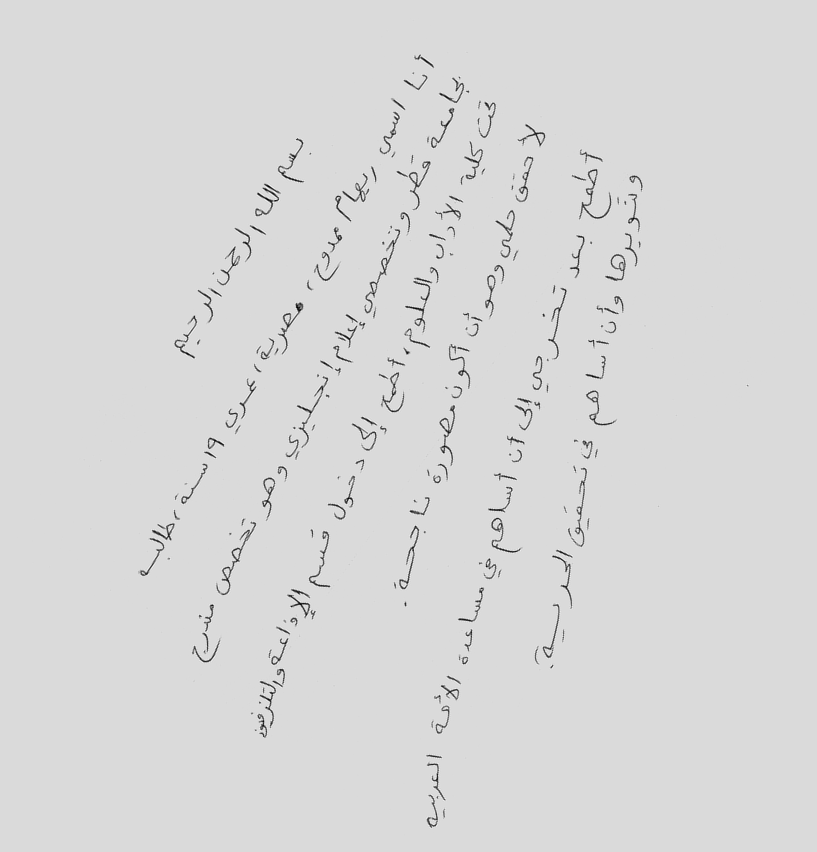 بسم الله الرحمن الرحيم
أنا اسمي ريهام ممدوح، مصرية، عمري ١٩ سنة، طالبه
بجامعة قطر وتخصصي إعلام إنجليزي وهو تخصص مندرج
تحت كلية الأداب والعلوم، أطمح إلى دخول قسم الإذاعة والتلفزيون
لأحقق حلمي وهو أن أكون مصورة ناجحة.
أطمح بعد تخرجي إلى أن أساهم في مساعدة الأمة العربيه
وتنويرها وأن أساهم في تحقيق الحرية.